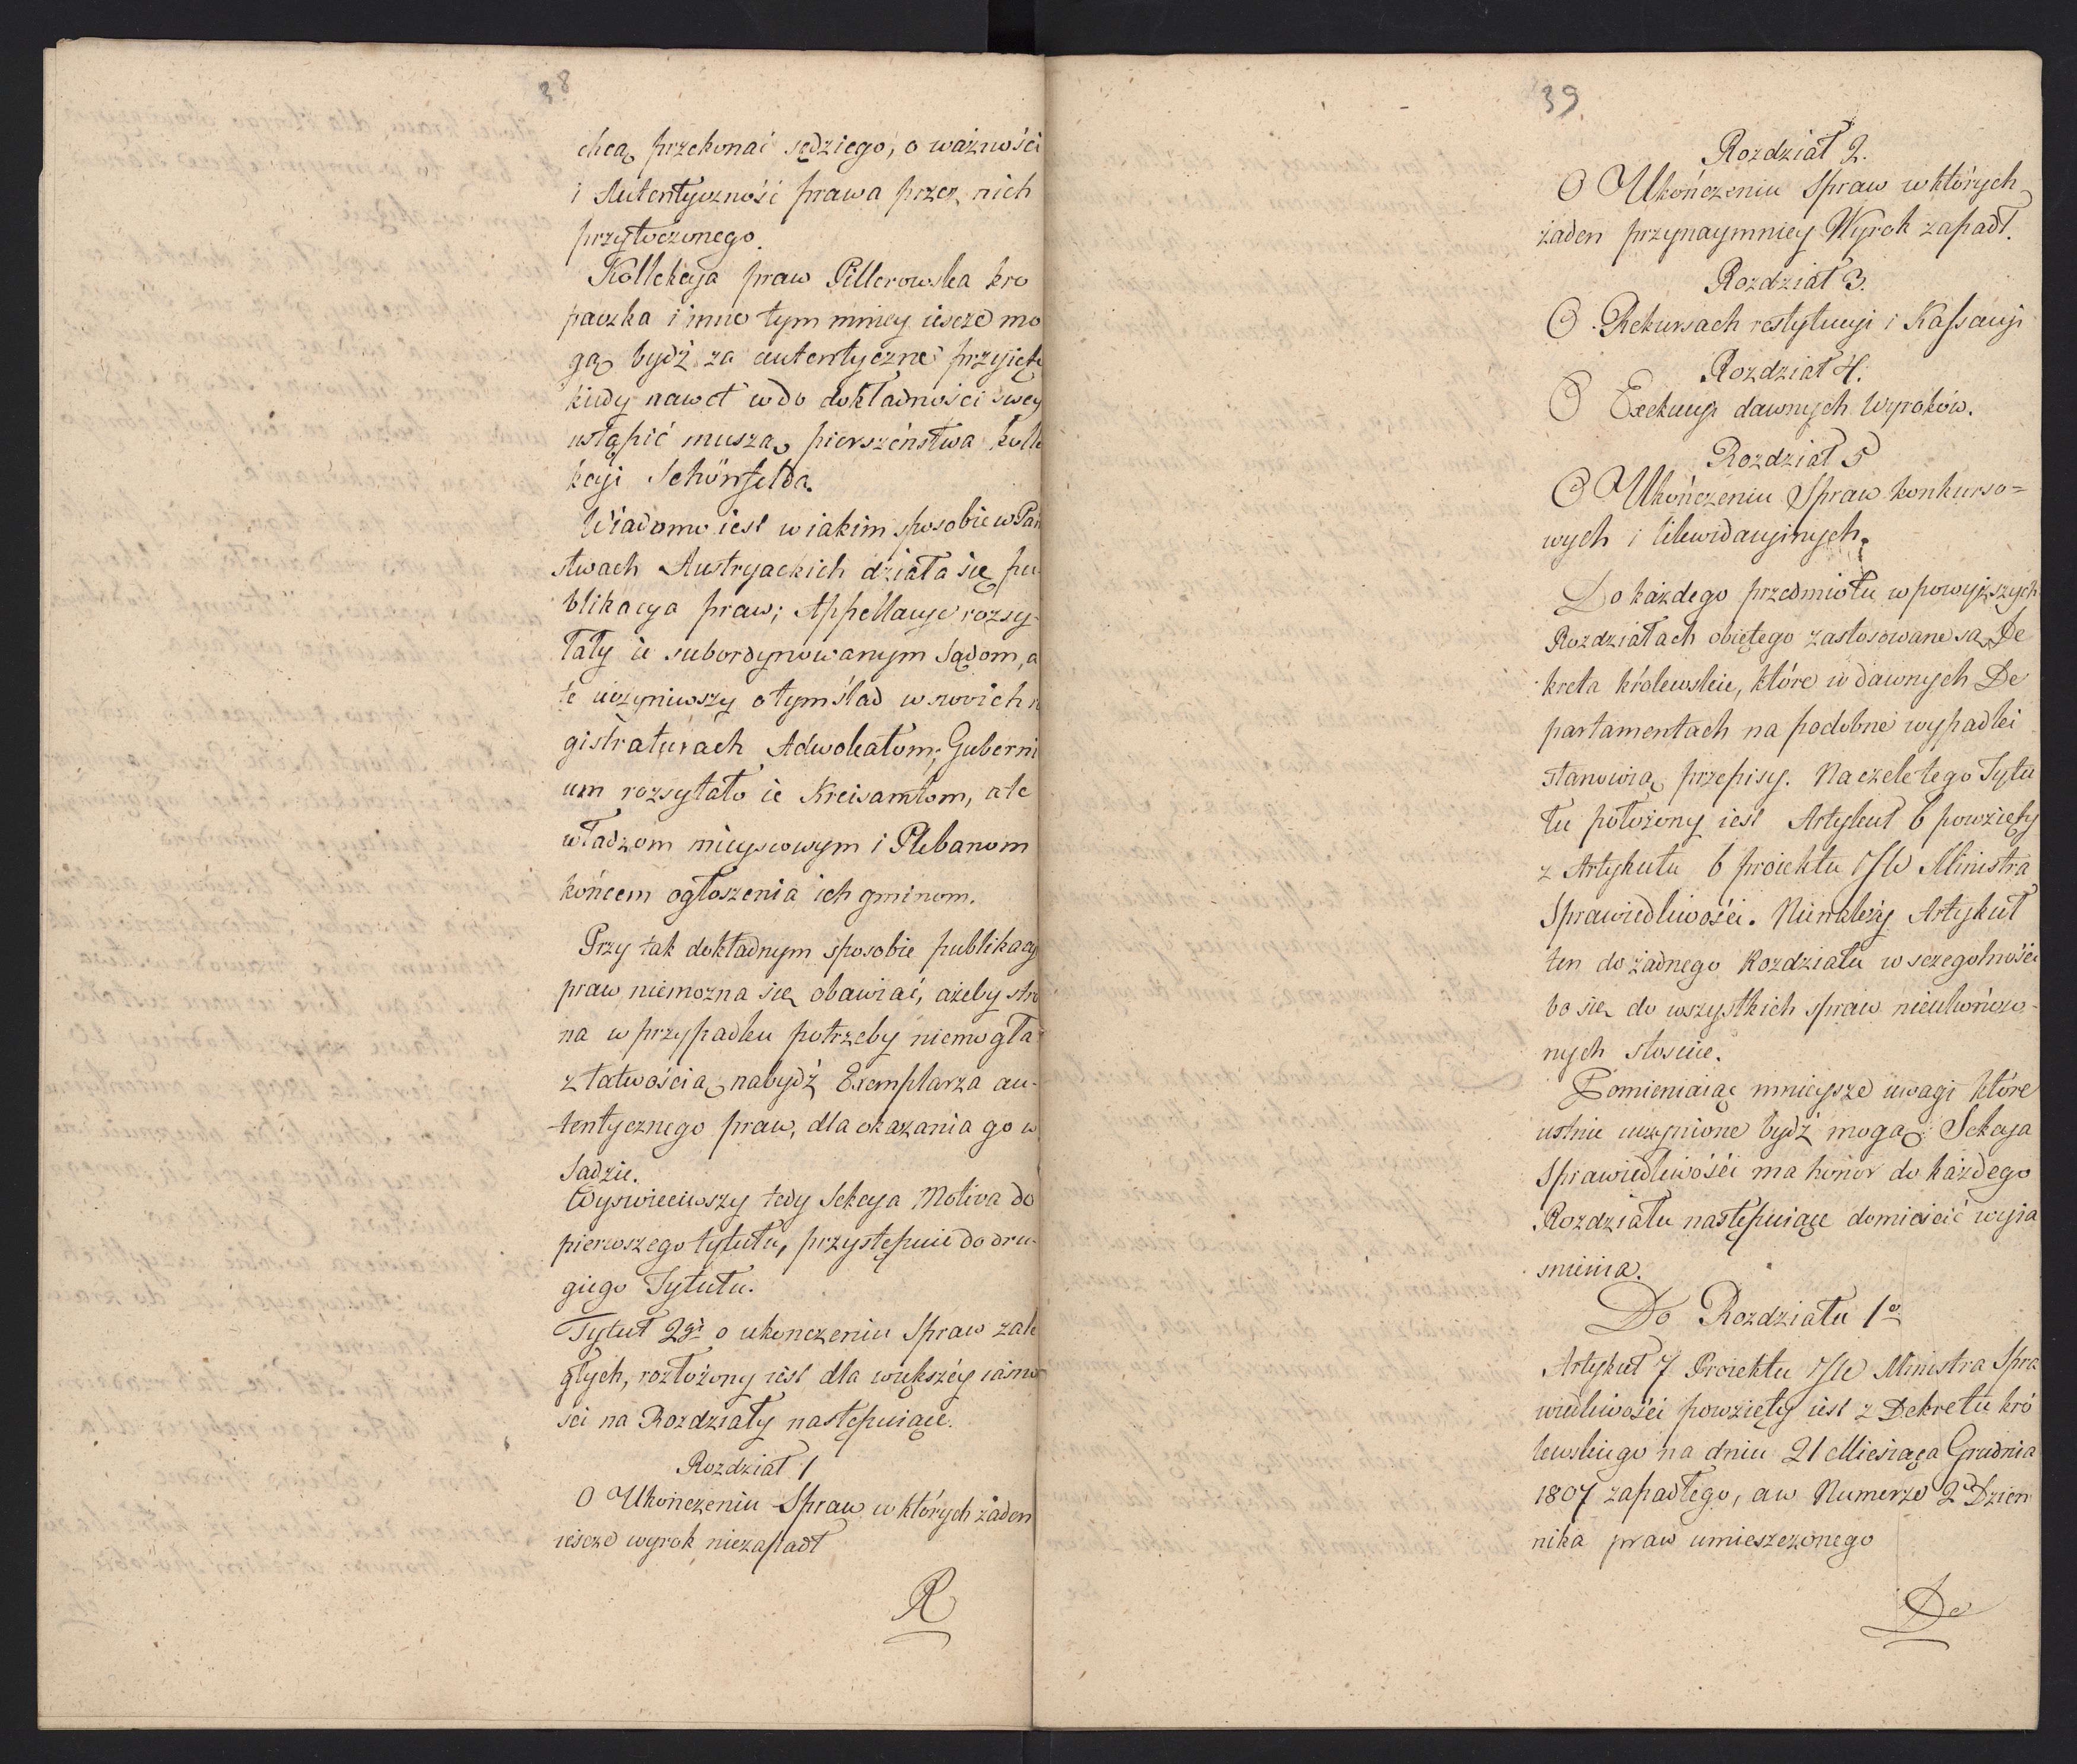 38
chcą przekonać sędziego, o ważności
i Autentyczność prawa przez nich
przytoczonego.
Kollekcya praw Pillerowska kro
paczka i inne tym mniey ieszcze mo
gą bydź za autentyczne przyięte
kiedy nawet wdo dokładności swey
ustąpić muszą pierszeństwa kolle
kcyi Schönfelda.
Wiadomo iest w iakim sposobie w Pań
stwach Austryackich działa się pu
blikacya praw; Appellacye rozsy
łały ie subordynowanym Sądom, a
te uczyniwszy o tym ślad w swoich re
gistraturach Adwokatom; Guberni
um rozsyłało ie Kreisamtom, a te
władzom mieyscowym i Plebanom
końcem ogłoszenia ich gminom.
Przy tak dokładnym sposobie publikacyi
praw niemożna się obawiać, ażeby stro
na w przypadku potrzeby niemogła
z łatwością nabydź Exemplarza au-
tentycznego praw, dla okazania go w
Sądzie.
Wyswieciwszy tedy Sekcya Motiva do
pierwszego tytułu, przystępuie do dru-
giego Tytułu.
Tytuł 2gi o ukonczeniu Spraw zale
głych, rozłożony iest dla większéy iasno
sci na Rozdziały następuiące.
Rozdział 1
O Ukończeniu Spraw w których żaden
ieszcze wyrok niezapadł
R
39
Rozdział 2.
O Ukończeniu Spraw w których
żaden przynaymniey Wyrok zapadł.
Rozdział 3.
O Rekursach restytucyi i Kassacyi
Rozdział 4.
O Exekucyi dawnych Wyroków.
Rozdział 5
O Ukończeniu Spraw konkurso=
wych i likwidacyinych.
Do każdego przedmiotu w powyższych
Rozdziałach obiętego zastosowane są De
kreta królewskie, które w dawnych De
partamentach na podobne wypadki
stanowią przepisy. Na czele tego Tytu
łu położony iest Artykuł 6 powzięty
z Artykułu 6 proiektu JW Ministra
Sprawiedliwości. Nienależy Artykuł
ten do żadnego Rozdziału w sczegolności
bo się do wszystkich spraw nieukończo-
nych stosuie.
Pomieniaiąc mnieysze uwagi które
ustnie uczynione bydź mogą Sekcya
Sprawiedliwości ma honor do każdego
Rozdziału następuiące domieścić wyia
snienia.
Do Rozdziału 1o
Artykuł 7 Proiektu JW Ministra Spra
wiedliwości powzięty iest z Dekretu kró
lewskiego na dniu 21 Miesiąca Grudnia
1807 zapadłego, a w Numerze 2o Dzien
nika praw umieszczonego
De